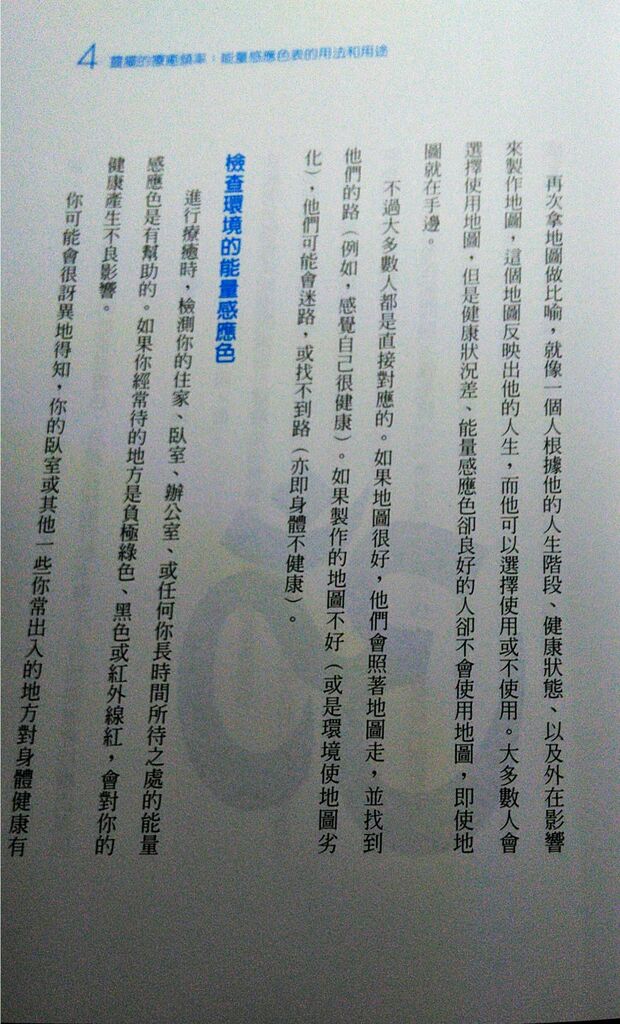 4 靈擺的療癒頻率：能量感應色表的用法和用途
再次拿地圖做比喻，就像一個人根據他的人生階段、健康狀態、以及外在影響
來製作地圖，這個地圖反映出他的人生，而他可以選擇使用或不使用。大多數人會
選擇使用地圖，但是健康狀況差、能量感應色卻良好的人卻不會使用地圖，即使地
圖就在手邊。
不過大多數人都是直接對應的。如果地圖很好，他們會照著地圖走，並找到
他們的路（例如，感覺自己很健康）。如果製作的地圖不好（或是環境使地圖劣
化），他們可能會迷路，或找不到路（亦即身體不健康）。
檢查環境的能量感應色
進行療癒時，檢測你的住家、臥室、辦公室、或任何你長時間所待之處的能量
感應色是有幫助的。如果你經常待的地方是負極綠色、黑色或紅外線紅，會對你的
健康產生不良影響。
你可能會很訝異地得知，你的臥室或其他一些你常出入的地方對身體健康有